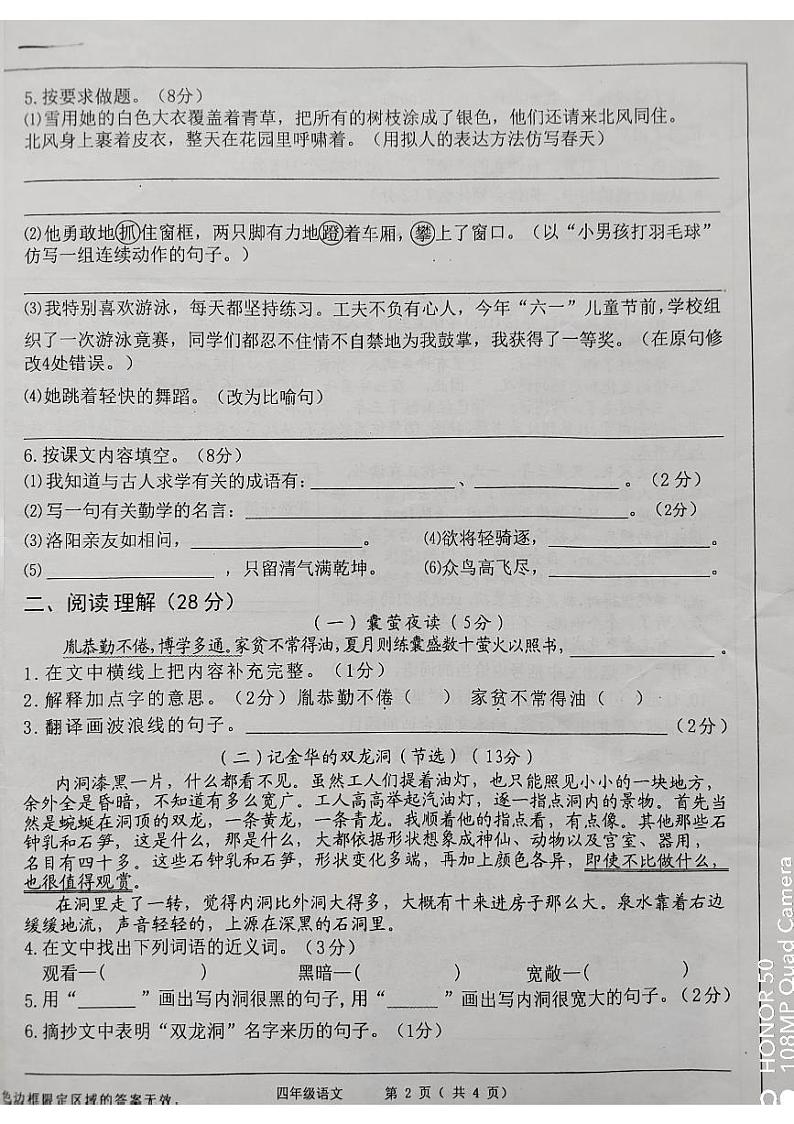 5.按要求做题。（8分）
⑴雪用她的白色大衣覆盖着青草，把所有的树枝涂成了银色，他们还请来北风同住。
北风身上裹着皮衣，整天在花园里呼啸着。（用拟人的表达方法仿写春天）
⑵他勇敢地抓住窗框，两只脚有力地蹬着车厢，攀上了窗口。（以“小男孩打羽毛球”
仿写一组连续动作的句子。）
⑶我特别喜欢游泳，每天都坚持练习。工夫不负有心人，今年“六一”儿童节前,学校组
织了一次游泳竟赛，同学们都忍不住情不自禁地为我鼓掌，我获得了一等奖。（在原句修
改4处错误。）
⑷她跳着轻快的舞蹈。（改为比喻句）
6.按课文内容填空。（8分）
⑴我知道与古人求学有关的成语有：____________、____________。（2分）
⑵写一句有关勤学的名言：____________。（2分）
⑶洛阳亲友如相问，____________。 ⑷欲将轻骑逐，____________。
⑸____________，只留清气满乾坤。 ⑹众鸟高飞尽，____________。
二、阅读理解（28分）
（一）囊萤夜读（5分）
胤恭勤不倦,博学多通。家贫不常得油,夏月则练囊盛数十萤火以照书，____________。
1.在文中横线上把内容补充完整。（1分）
2.解释加点字的意思。（2分）胤恭勤不倦（ ） 家贫不常得油（ ）
3.翻译画波浪线的句子。____________（2分）
（二）记金华的双龙洞（节选）（13分）
内洞漆黑一片，什么都看不见。虽然工人们提着油灯，也只能照见小小的一块地方，
余外全是昏暗，不知道有多么宽广。工人高高举起汽油灯，逐一指点洞内的景物。首先当
然是蜿蜒在洞顶的双龙，一条黄龙，一条青龙。我顺着他的指点看，有点像。其他那些石
钟乳和石笋，这是什么，那是什么，大都依据形状想象成神仙、动物以及宫室、器用，
名目有四十多。这些石钟乳和石笋，形状变化多端，再加上颜色各异，即使不比做什么，
也很值得观赏。
在洞里走了一转，觉得内洞比外洞大得多，大概有十来进房子那么大。泉水靠着右边
缓缓地流，声音轻轻的，上源在深黑的石洞里。
4.在文中找出下列词语的近义词。（3分）
观看—（ ） 黑暗—（ ） 宽敞—（ ）
5.用“______”画出写内洞很黑的句子,用“______”画出写内洞很宽大的句子。（2分）
6.摘抄文中表明“双龙洞”名字来历的句子。（1分）
四年级语文 第2页（共4页）
边框限定区域的答案无效。
HONOR 50
108MP Quad Camera